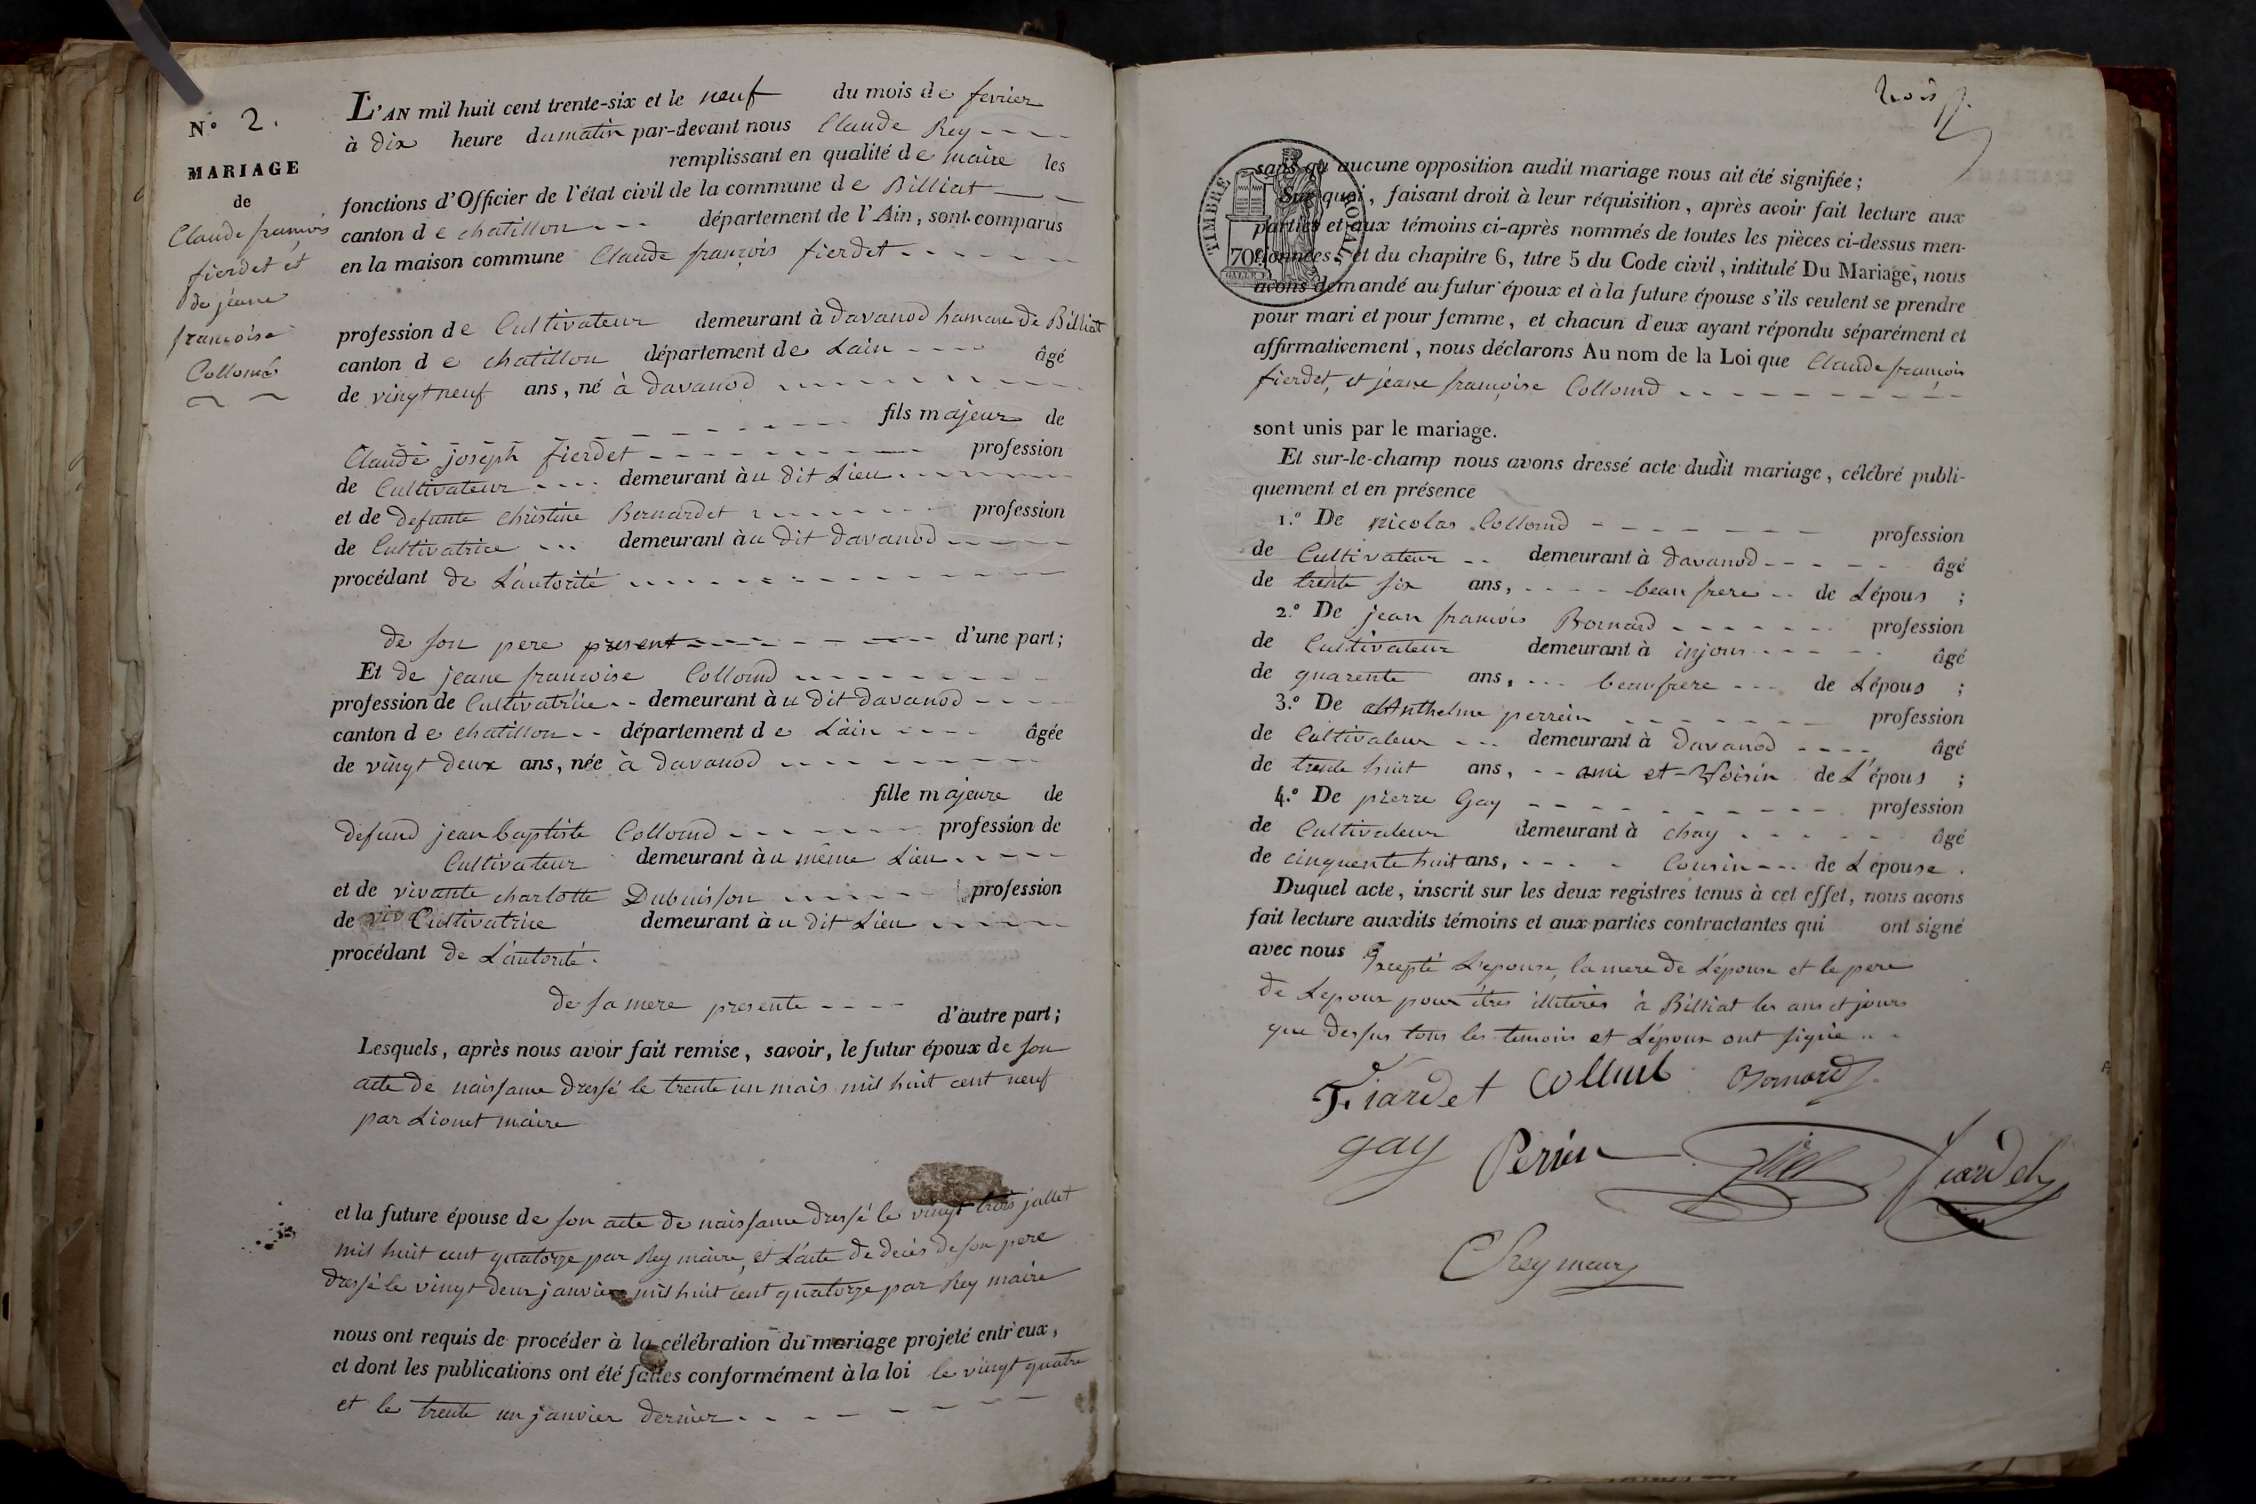 N° 2.
MARIAGE
de
Claude françois
fierdet et
de jéane
françoise
Collomd
L'AN mil huit cent trente-six et le neuf du mois de fevrier
à dix heure du matin par-devant nous Claude Rey
remplissant en qualité de maire les
fonctions d'Officier de l'état civil de la commune de Billiat
canton de chatillon département de l'Ain, sont comparus
en la maison commune Claude françois fierdet
profession de Cultivateur demeurant à davanod hamau de Billiat
canton de chatillon département de Lain âgé
de vingt neuf ans, né à davanod
fils majeur de
Claude joseph fierdet profession
de Cultivateur demeurant àu dit Lieu
et de defunte christine Bernardet profession
de Cultivatrice demeurant àu dit davanod
procédant de L'autorité
de son pere present d'une part;
Et de jeane francoise Collomd
profession de Cultivatrice demeurant àu dit davanod
canton de chatillon département de Lain âgée
de vingt deux ans, née à davanod
fille majeure de
defund jean baptiste Collomd profession de
Cultivateur demeurant àu même Lieu
et de vivante charlotte Dubuisson profession
de Cultivatrice demeurant àu dit Lieu
procédant de L'autorité.
de sa mere presente d'autre part;
Lesquels, après nous avoir fait remise, savoir, le futur époux de son
acte de naissance dressé le trente un mais mil huit cent neuf
par Lionet maire
et la future épouse de son acte de naissance dressé le vingt trois jallet
mil huit cent quatorze par Rey maire, et L'acte de decès de son pere
dressé le vingt deux janvier mil huit cent quatorze par Rey maire
nous ont requis de procéder à la célébration du mariage projeté entr'eux,
et dont les publications ont été faites conformément à la loi le vingt quatre
et le trente un janvier dernier
trois
TIMBRE ROYAL
70
sans qu'aucune opposition audit mariage nous ait été signifiée;
Sur quoi, faisant droit à leur réquisition, après avoir fait lecture aux
parties et aux témoins ci-après nommés de toutes les pièces ci-dessus men-
tionnées, et du chapitre 6, titre 5 du Code civil, intitulé Du Mariage, nous
avons demandé au futur époux et à la future épouse s'ils veulent se prendre
pour mari et pour femme, et chacun d'eux ayant répondu séparément et
affirmativement, nous déclarons Au nom de la Loi que Claude françois
fierdet, et jeane françoise Collomd
sont unis par le mariage.
Et sur-le-champ nous avons dressé acte dudit mariage, célébré publi-
quement et en présence
1.° De nicolas Collomd profession
de Cultivateur demeurant à davanod âgé
de trente six ans, beau frere de L'épous ;
2.° De jean francois Bornard profession
de Cultivateur demeurant à injoux âgé
de quarente ans, beaufrere de L'épous ;
3.° De Anthelme perrein profession
de Cultivateur demeurant à davanod âgé
de trente huit ans, ami et Voisin de L'épous ;
4.° De pierre Gay profession
de Cultivateur demeurant à chay âgé
de cinquente huit ans, Cousin de L'epouse .
Duquel acte, inscrit sur les deux registres tenus à cet effet, nous avons
fait lecture auxdits témoins et aux parties contractantes qui ont signé
avec nous Excepté L'epouse, la mere de L'épouse et le pere
de Lepoux pour êtres illiterés à Billiat les ans et jours
que dessus tous les temoins et L'époux ont signé
Fiardet Collud Bornard
gay Perrin fiardet
C Rey maire